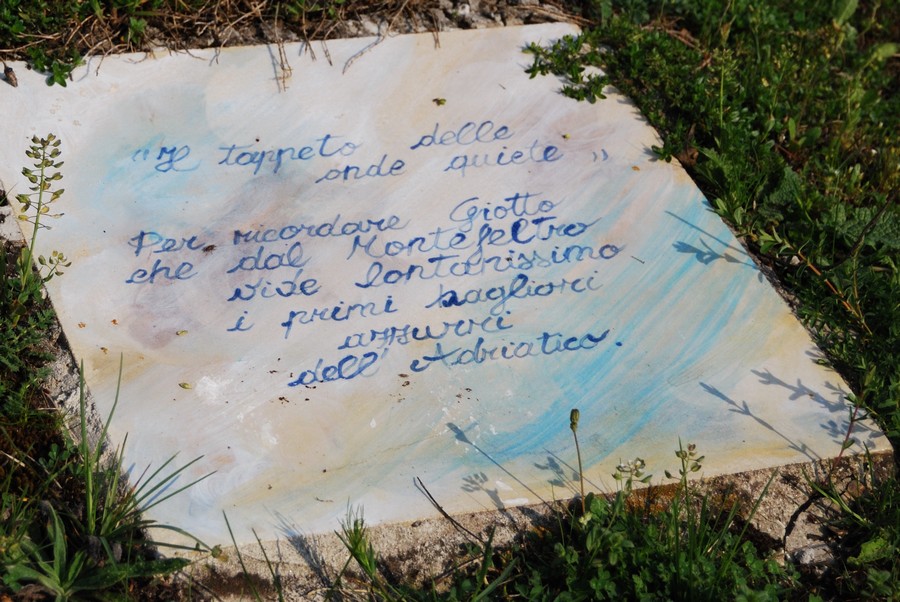 "Il tappeto delle
onde quiete"
Per ricordare Giotto
che dal Montefeltro
vide lontanissimo
i primi bagliori
azzurri
dell'Adriatico.